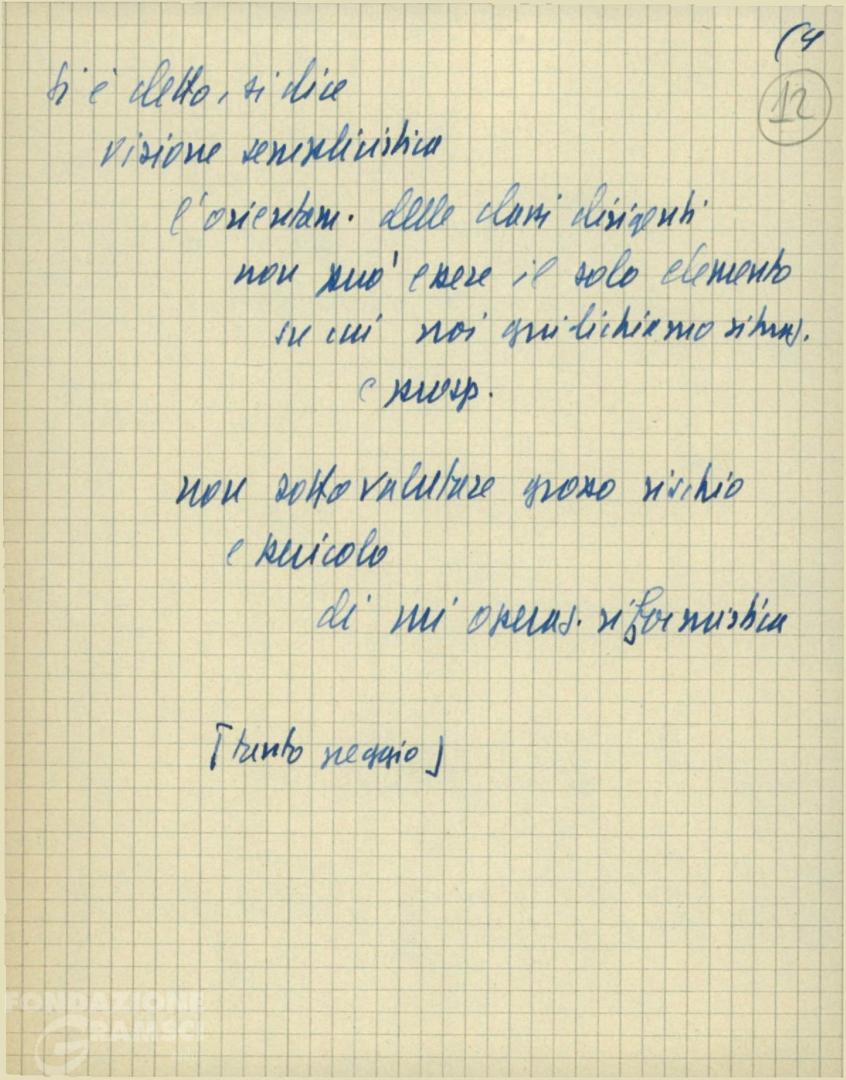 (4
12
si è detto, si dice
visione semplicistica
l'orientam. delle classi dirigenti
non può essere il solo elemento
su cui noi giudichiamo situaz.
e prosp.
non sottovalutare grosso rischio
e pericolo
di un'operaz. riformistica
[tanto peggio]
FONDAZIONE
GRAMSCI